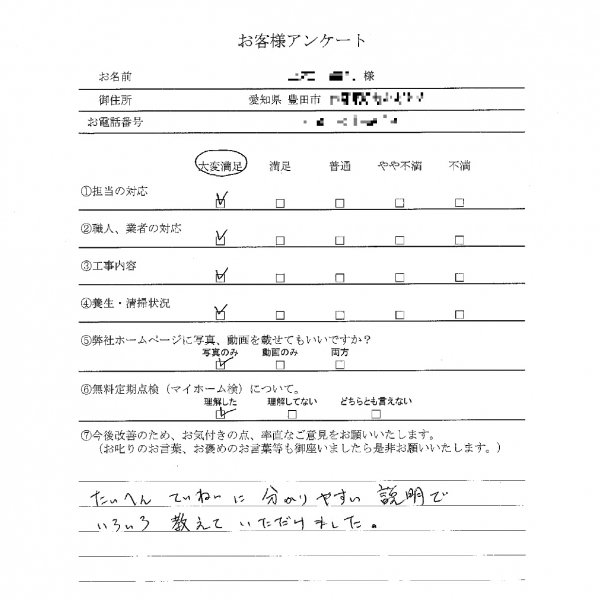 お客様アンケート
お名前 様
御住所 愛知県 豊田市
お電話番号
大変満足 満足 普通 やや不満 不満
①担当の対応
②職人、業者の対応
③工事内容
④養生・清掃状況
⑤弊社ホームページに写真、動画を載せてもいいですか？
写真のみ 動画のみ 両方
⑥無料定期点検（マイホーム検）について。
理解した 理解してない どちらとも言えない
⑦今後改善のため、お気付きの点、率直なご意見をお願いいたします。
（お叱りのお言葉、お褒めのお言葉等も御座いましたら是非お願いいたします。）
たいへん ていねいに 分かりやすい 説明で
いろいろ 教えて いただけました。